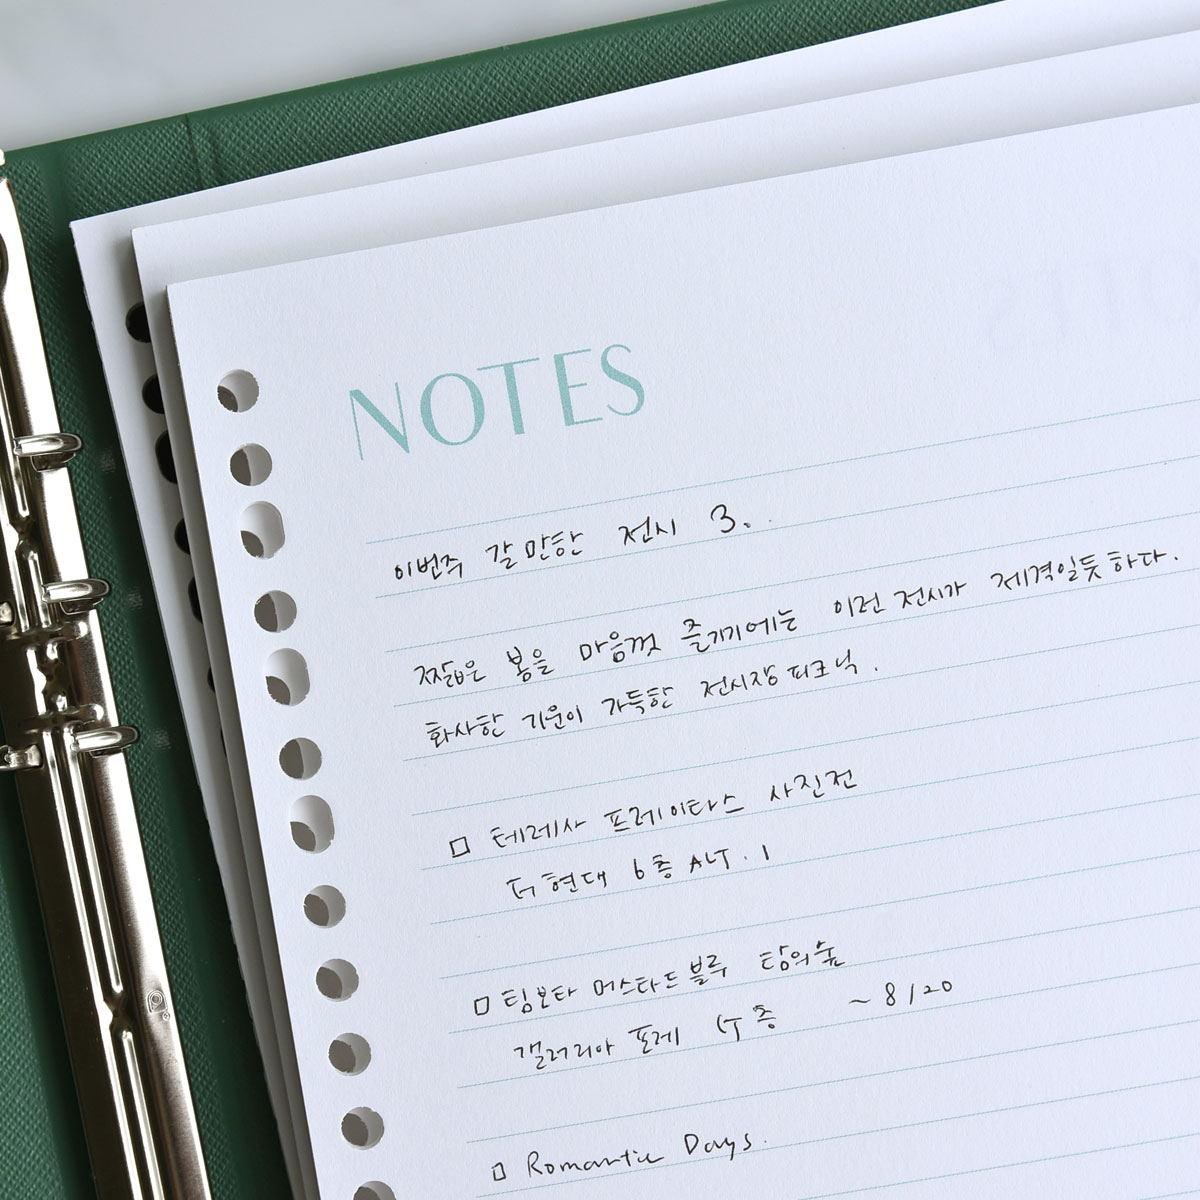 NOTES
이번주 갈만한 전시 3.
짧은 봄을 마음껏 즐기기에는 이런 전시가 제격일듯하다.
화사한 기운이 가득한 전시장 피크닉.
□ 테레사 프레이타스 사진전
더현대 6층 ALT.1
□ 팀보타 머스타드블루 탐의숲
갤러리아 포레 층 ~8/20
□ Romantic Days.